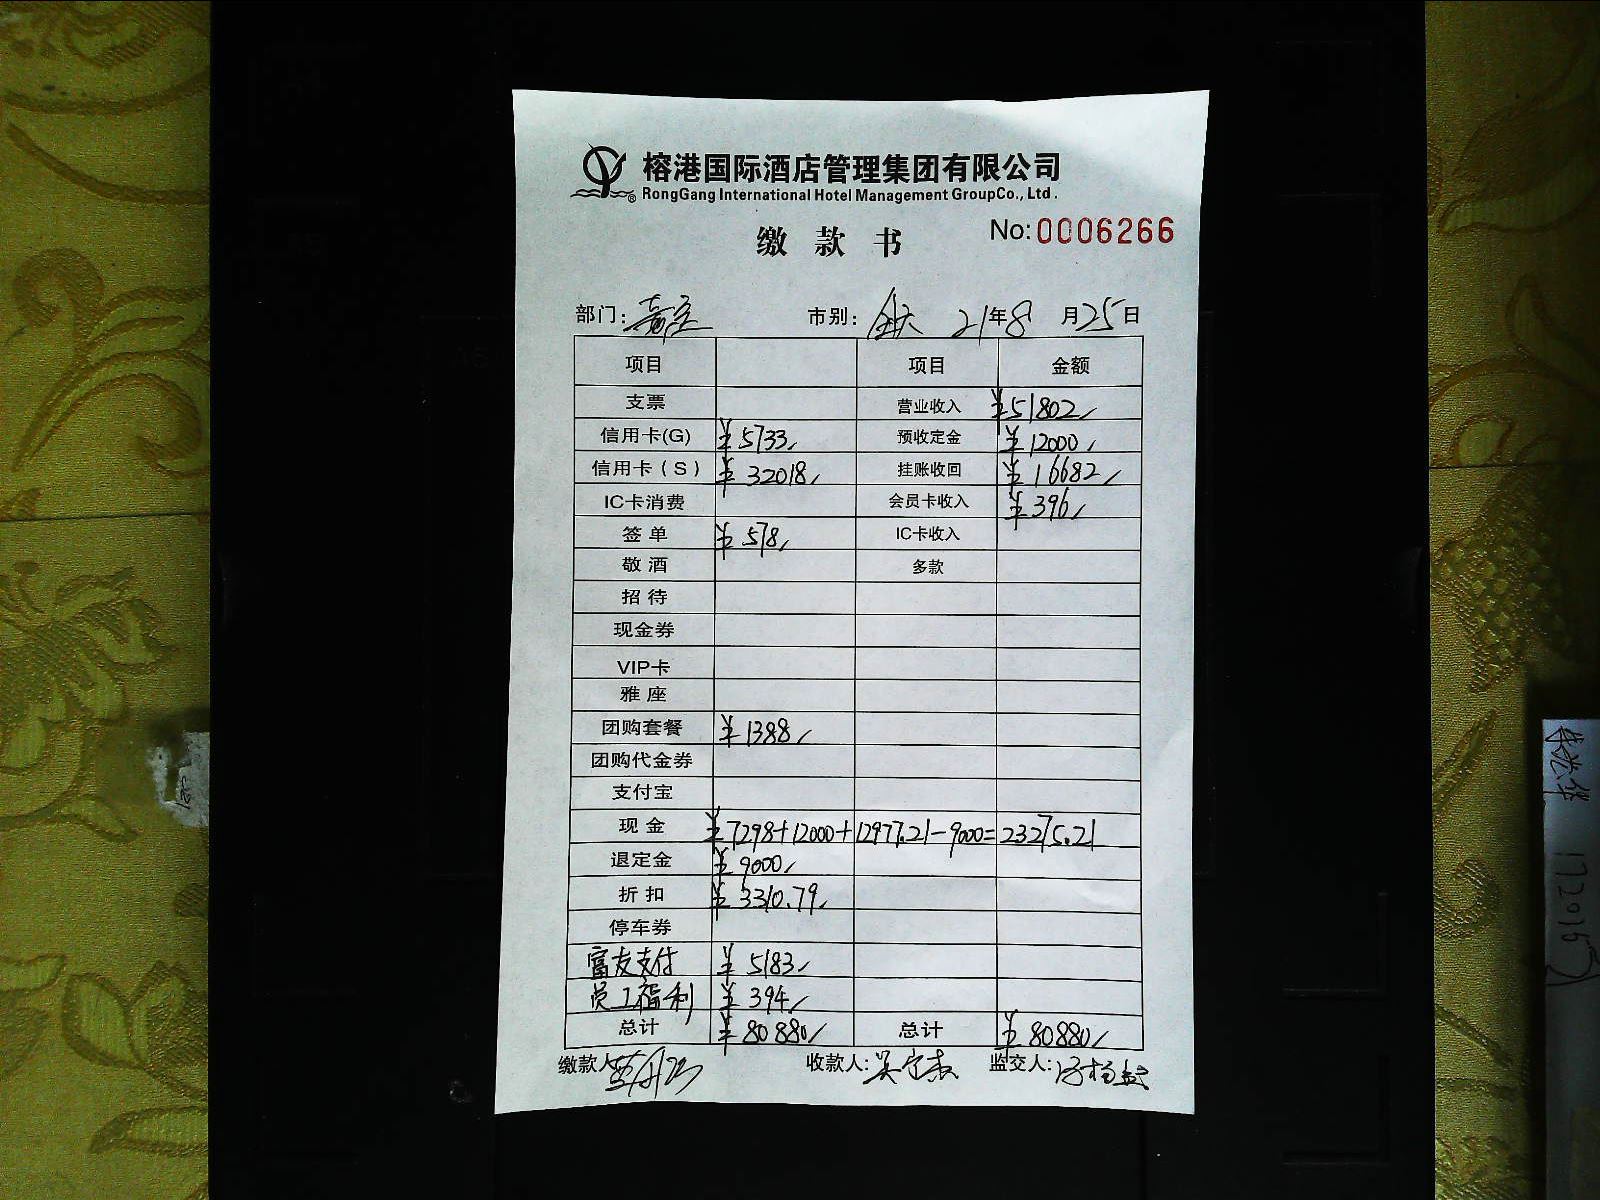 榕港国际酒店管理集团有限公司
® RongGang International Hotel Management GroupCo., Ltd.
缴 款 书 No:0006266
部门: 市别: 21年8月25日
项目 项目 金额
支票 营业收入 ¥51802
信用卡(G) ¥5733 预收定金 ¥12000
信用卡(S) ¥32018 挂账收回 ¥16682
IC卡消费 会员卡收入 ¥396
签单 ¥578 IC卡收入
敬酒 多款
招待
现金券
VIP卡
雅座
团购套餐 ¥1388
团购代金券
支付宝
现金 ¥7298+12000+12977.21-9000=23275.21
退定金 ¥9000
折扣 ¥3310.79
停车券
富友支付 ¥5183
员工福利 ¥394
总计 ¥80880 总计 ¥80880
缴款人 收款人: 监交人: